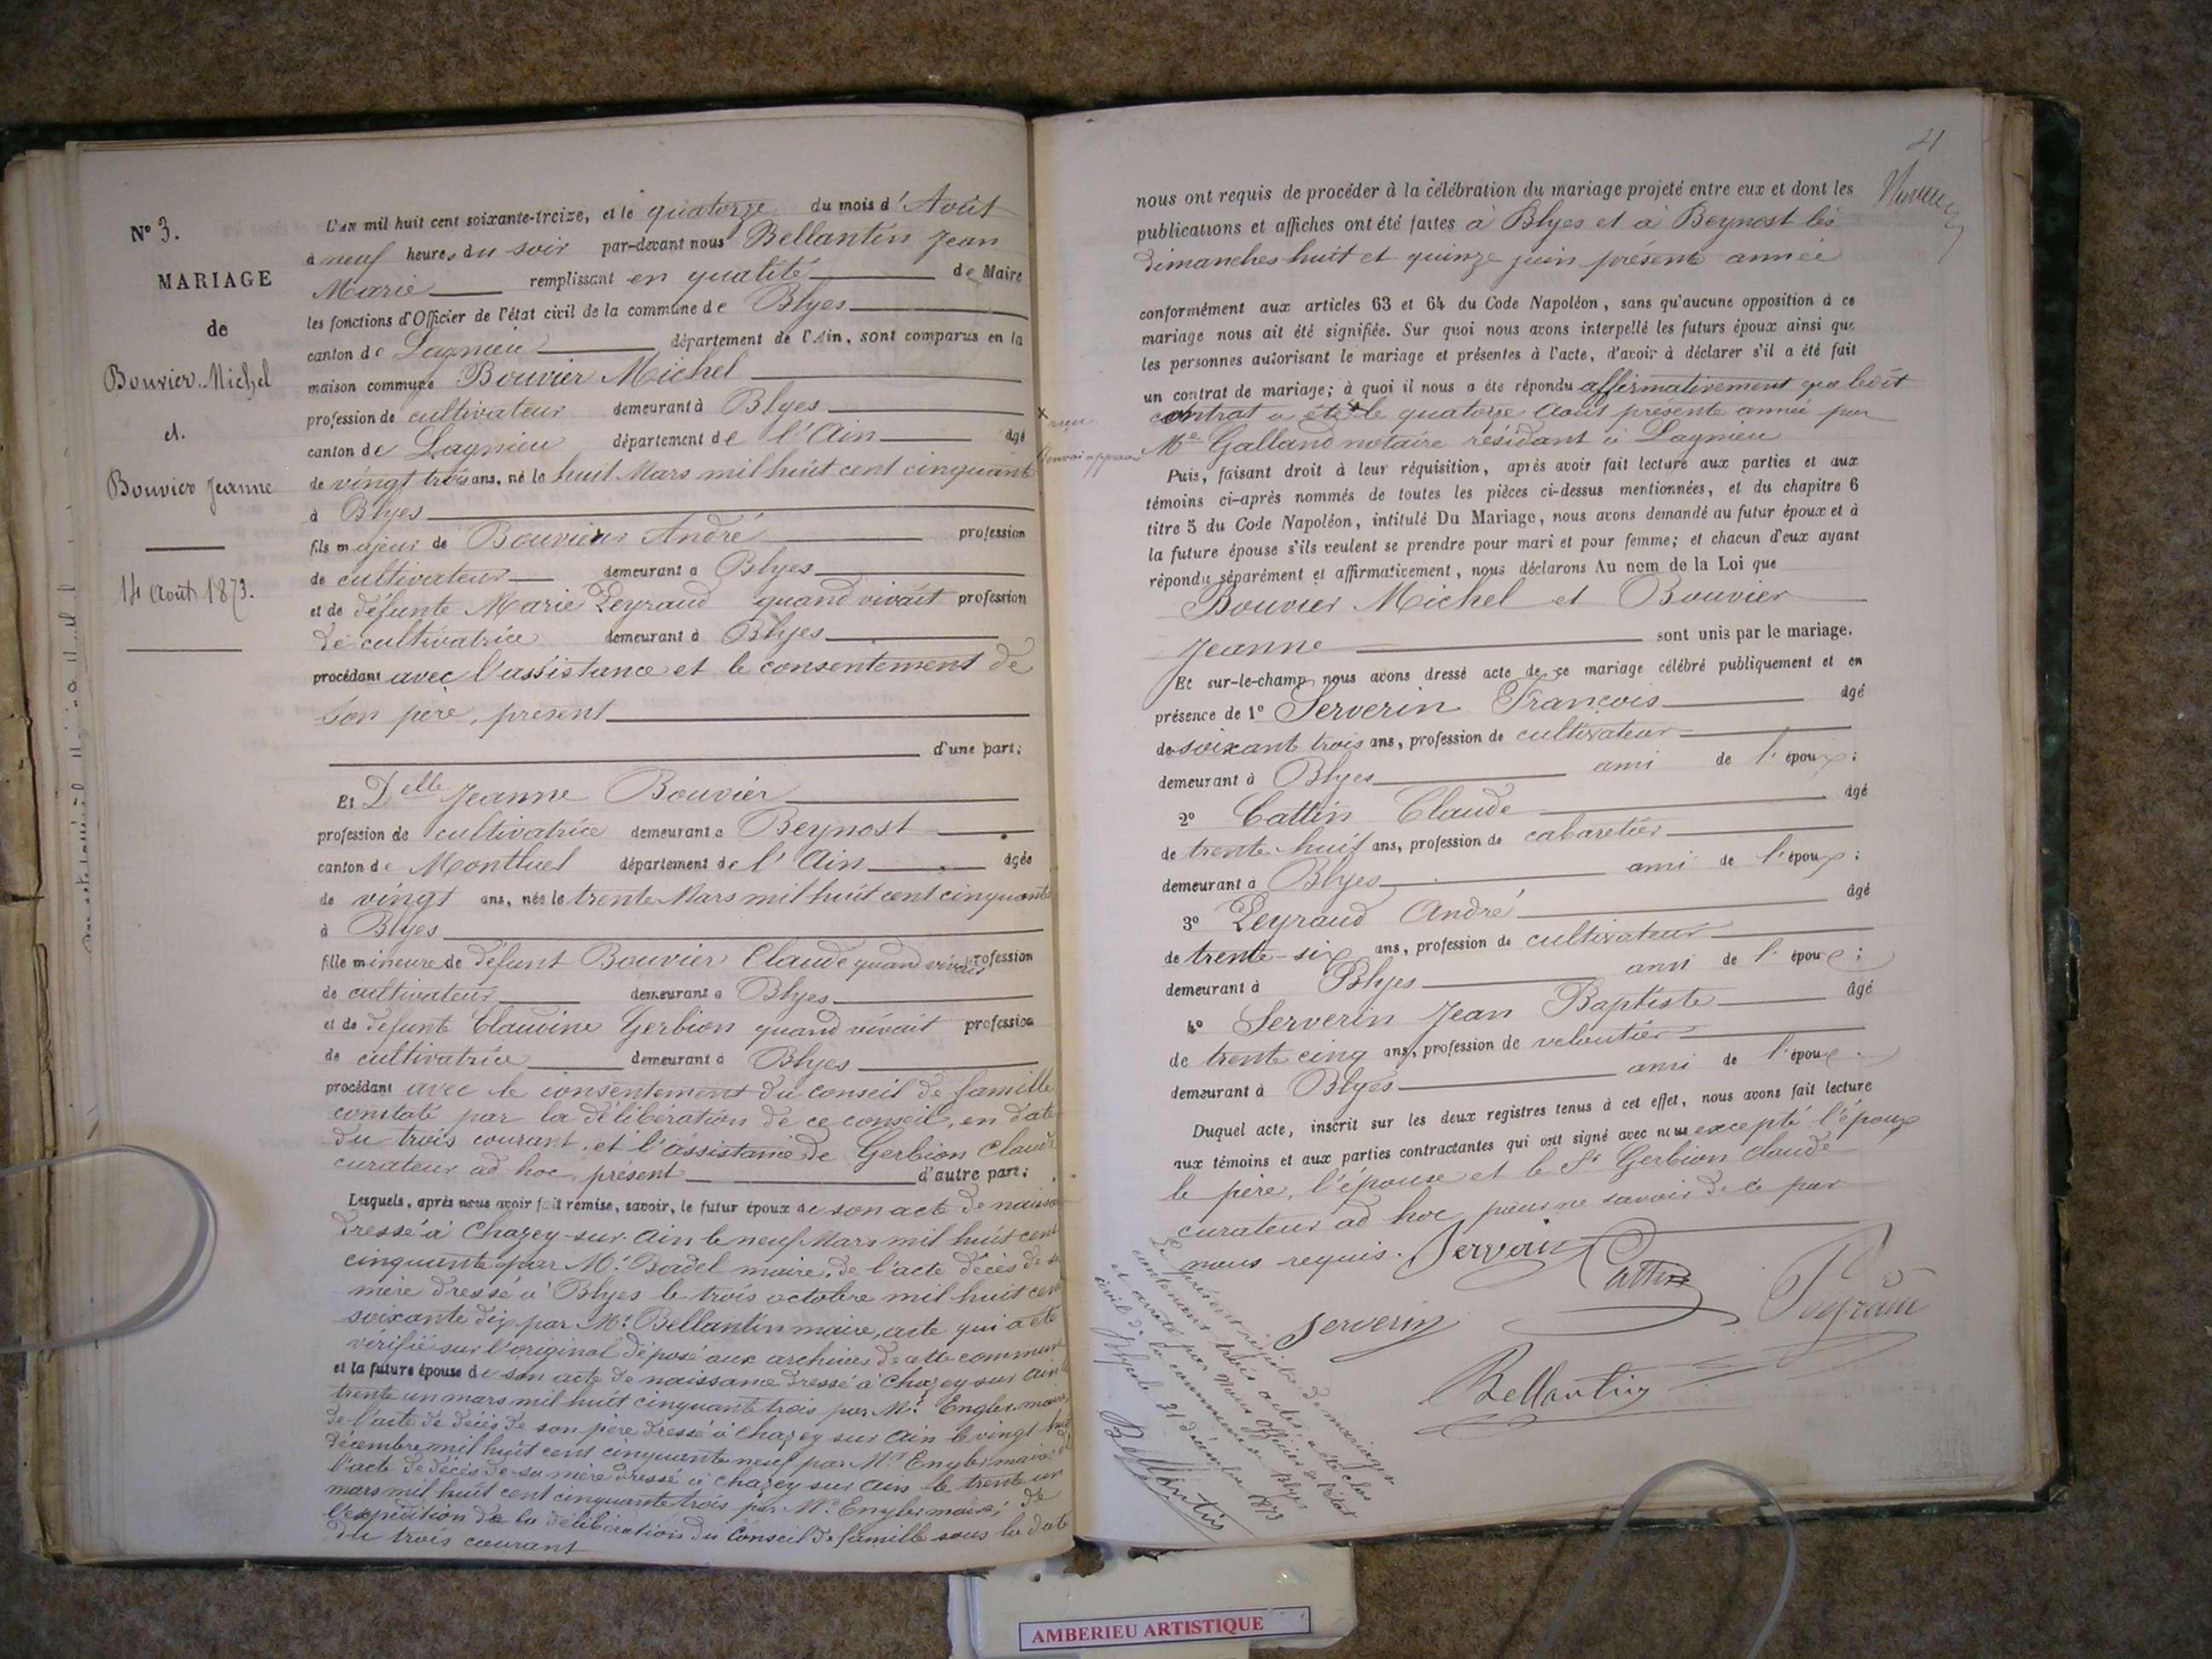 N° 3.
MARIAGE
de
Bouvier Michel
et
Bouvier Jeanne
14 Août 1873.
L'AN mil huit cent soixante-treize, et le quatorze du mois d'Août
à neuf heures du soir par-devant nous Bellantin Jean
Marie remplissant en qualité de Maire
les fonctions d'Officier de l'état civil de la commune de Blyes
canton de Lagnieu département de l'Ain, sont comparus en la
maison commune Bouvier Michel
profession de cultivateur demeurant à Blyes
canton de Lagnieu département de l'Ain âgé
de vingt trois ans, né le huit Mars mil huit cent cinquante
à Blyes
fils majeur de Bouvier André profession
de cultivateur demeurant à Blyes
et de défunte Marie Peyraud quand vivait profession
de cultivatrice demeurant à Blyes
procédant avec l'assistance et le consentement de
son père, présent
d'une part;
Et Delle Jeanne Bouvier
profession de cultivatrice demeurant à Beynost
canton de Montluel département de l'Ain âgée
de vingt ans, née le trente Mars mil huit cent cinquante
à Blyes
fille mineure de défunt Bouvier Claude quand vivait profession
de cultivateur demeurant à Blyes
et de défunte Claudine Gerbion quand vivait profession
de cultivatrice demeurant à Blyes
procédant avec le consentement du conseil de famille
constaté par la délibération de ce conseil, en date
du trois courant, et l'assistance de Gerbion Claude
curateur ad hoc, présent d'autre part;
Lesquels, après nous avoir fait remise, savoir, le futur époux de son acte de naissance
dressé à Chazey-sur-Ain le neuf Mars mil huit cent
cinquante par Mr Badel maire, de l'acte décès de sa
mère dressé à Blyes le trois octobre mil huit cent
soixante dix par Mr Bellantin maire, acte qui a été
vérifié sur l'original déposé aux archives de cette commune
et la future épouse de son acte de naissance dressé à Chazey sur Ain le
trente un mars mil huit cinquante trois par Mr Engler maire,
de l'acte de décès de son père dressé à Chazey sur Ain le vingt huit
décembre mil huit cent cinquante neuf par Mr Engler maire; de
l'acte de décès de sa mère dressé à Chazey sur Ain le trente un
mars mil huit cent cinquante trois par Mr Engler maire; de
l'expédition de la délibération du Conseil de famille sous la date
du trois courant
4
nous ont requis de procéder à la célébration du mariage projeté entre eux et dont les
publications et affiches ont été faites à Blyes et à Beynost les
dimanches huit et quinze juin présente année
conformément aux articles 63 et 64 du Code Napoléon, sans qu'aucune opposition à ce
mariage nous ait été signifiée. Sur quoi nous avons interpellé les futurs époux ainsi que
les personnes autorisant le mariage et présentes à l'acte, d'avoir à déclarer s'il a été fait
un contrat de mariage; à quoi il nous a été répondu affirmativement que ledit
contrat a été x le quatorze Août présente année par
x reçu
Renvoi approuvé
Me Galland notaire résidant à Lagnieu
Puis, faisant droit à leur réquisition, après avoir fait lecture aux parties et aux
témoins ci-après nommés de toutes les pièces ci-dessus mentionnées, et du chapitre 6
titre 5 du Code Napoléon, intitulé Du Mariage, nous avons demandé au futur époux et à
la future épouse s'ils veulent se prendre pour mari et pour femme; et chacun d'eux ayant
répondu séparément et affirmativement, nous déclarons Au nom de la Loi que
Bouvier Michel et Bouvier
Jeanne sont unis par le mariage.
Et sur-le-champ nous avons dressé acte de ce mariage célébré publiquement et en
présence de 1° Serverin François âgé
de soixante trois ans, profession de cultivateur
demeurant à Blyes ami de l'époux;
2° Cattin Claude âgé
de trente huit ans, profession de cabaretier
demeurant à Blyes ami de l'époux;
3° Peyraud André âgé
de trente-six ans, profession de cultivateur
demeurant à Blyes ami de l'épou ;
4° Serverin Jean Baptiste âgé
de trente cinq ans, profession de veloutier
demeurant à Blyes ami de l'épou
Duquel acte, inscrit sur les deux registres tenus à cet effet, nous avons fait lecture
aux témoins et aux parties contractantes qui ont signé avec nous excepté l'époux
le père, l'épouse et le Sr Gerbion Claude
curateur ad hoc, pour ne savoir de ce par
nous requis. Serverin Cattin
Serverin Peyraud
Bellantin
Le présent registre de mariages
contenant trois actes, a été clos
et arrêté par nous officier de l'état
civil de la commune de Blyes
Blyes le 31 décembre 1873
Bellantin
AMBERIEU ARTISTIQUE